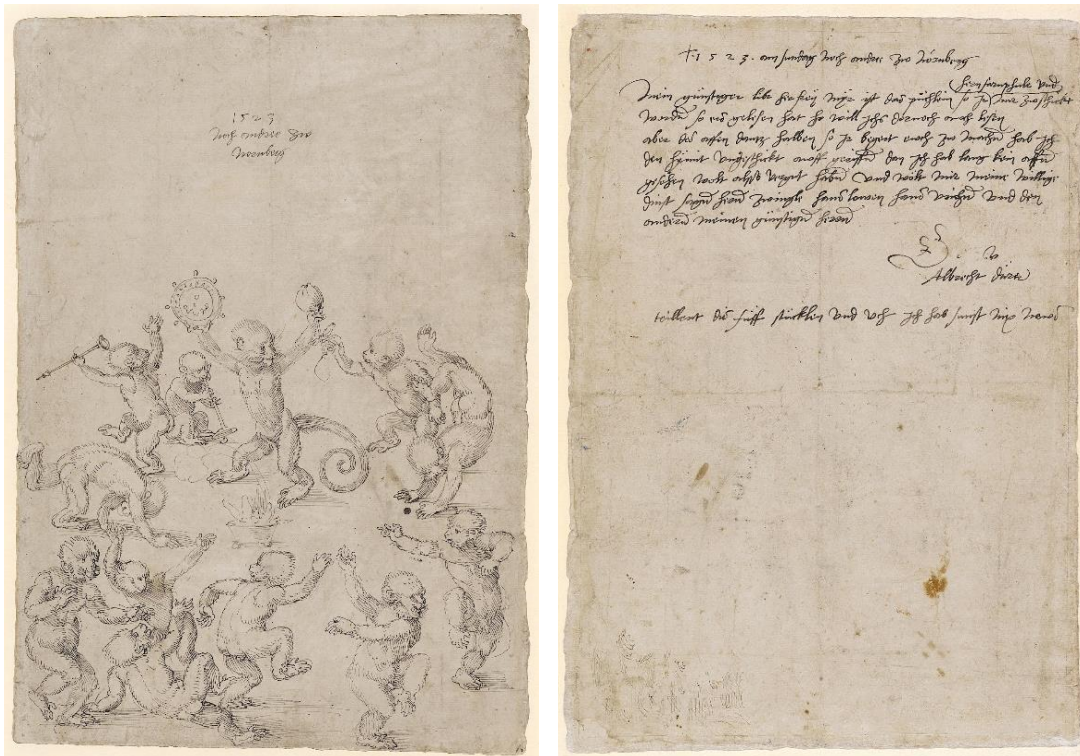 1523
Noch andree zw
Nornberg
1523 am sundag noch andree zw Nörnberg
hern farnphule vnd
Mein günstiger liber her frey mir ist das püchlein so ir mir zwschickt
worden so ers gelesen hat so will ichs dornoch awch lesen
aber des affen dantz halben so ir begert ewch zw machen hab ich
den hymit vngeschickt awff gerissen dan ich hab lang kein affen
gesehen wolt also vergut haben vnd wölt mir meine willige
dinst sagen hern zwingle hans lowen hans vrichen vnd den
anderen meinen günstigen heren
Albrecht dürer
teillent dis fünff stücklen vnd vch ich hab sunst nix news